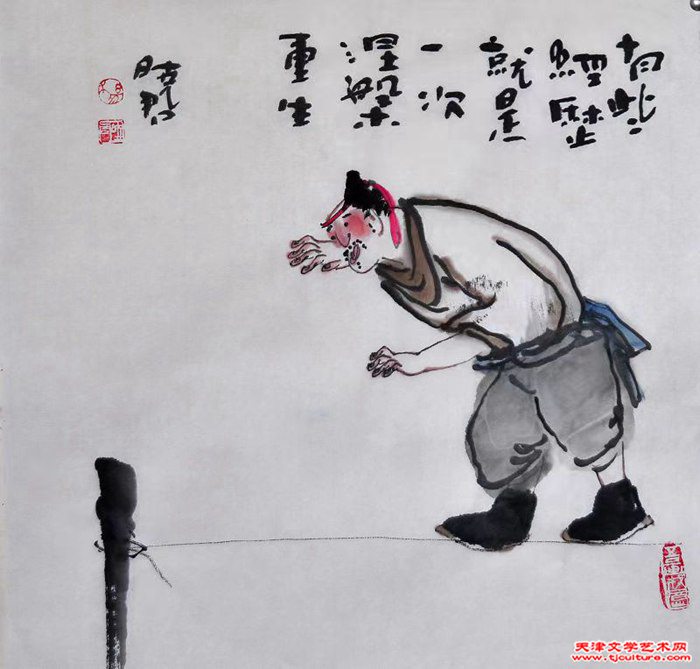 有些
經歷
就是
一次
涅槃
重生
天津文学艺术网
www.tjculture.com